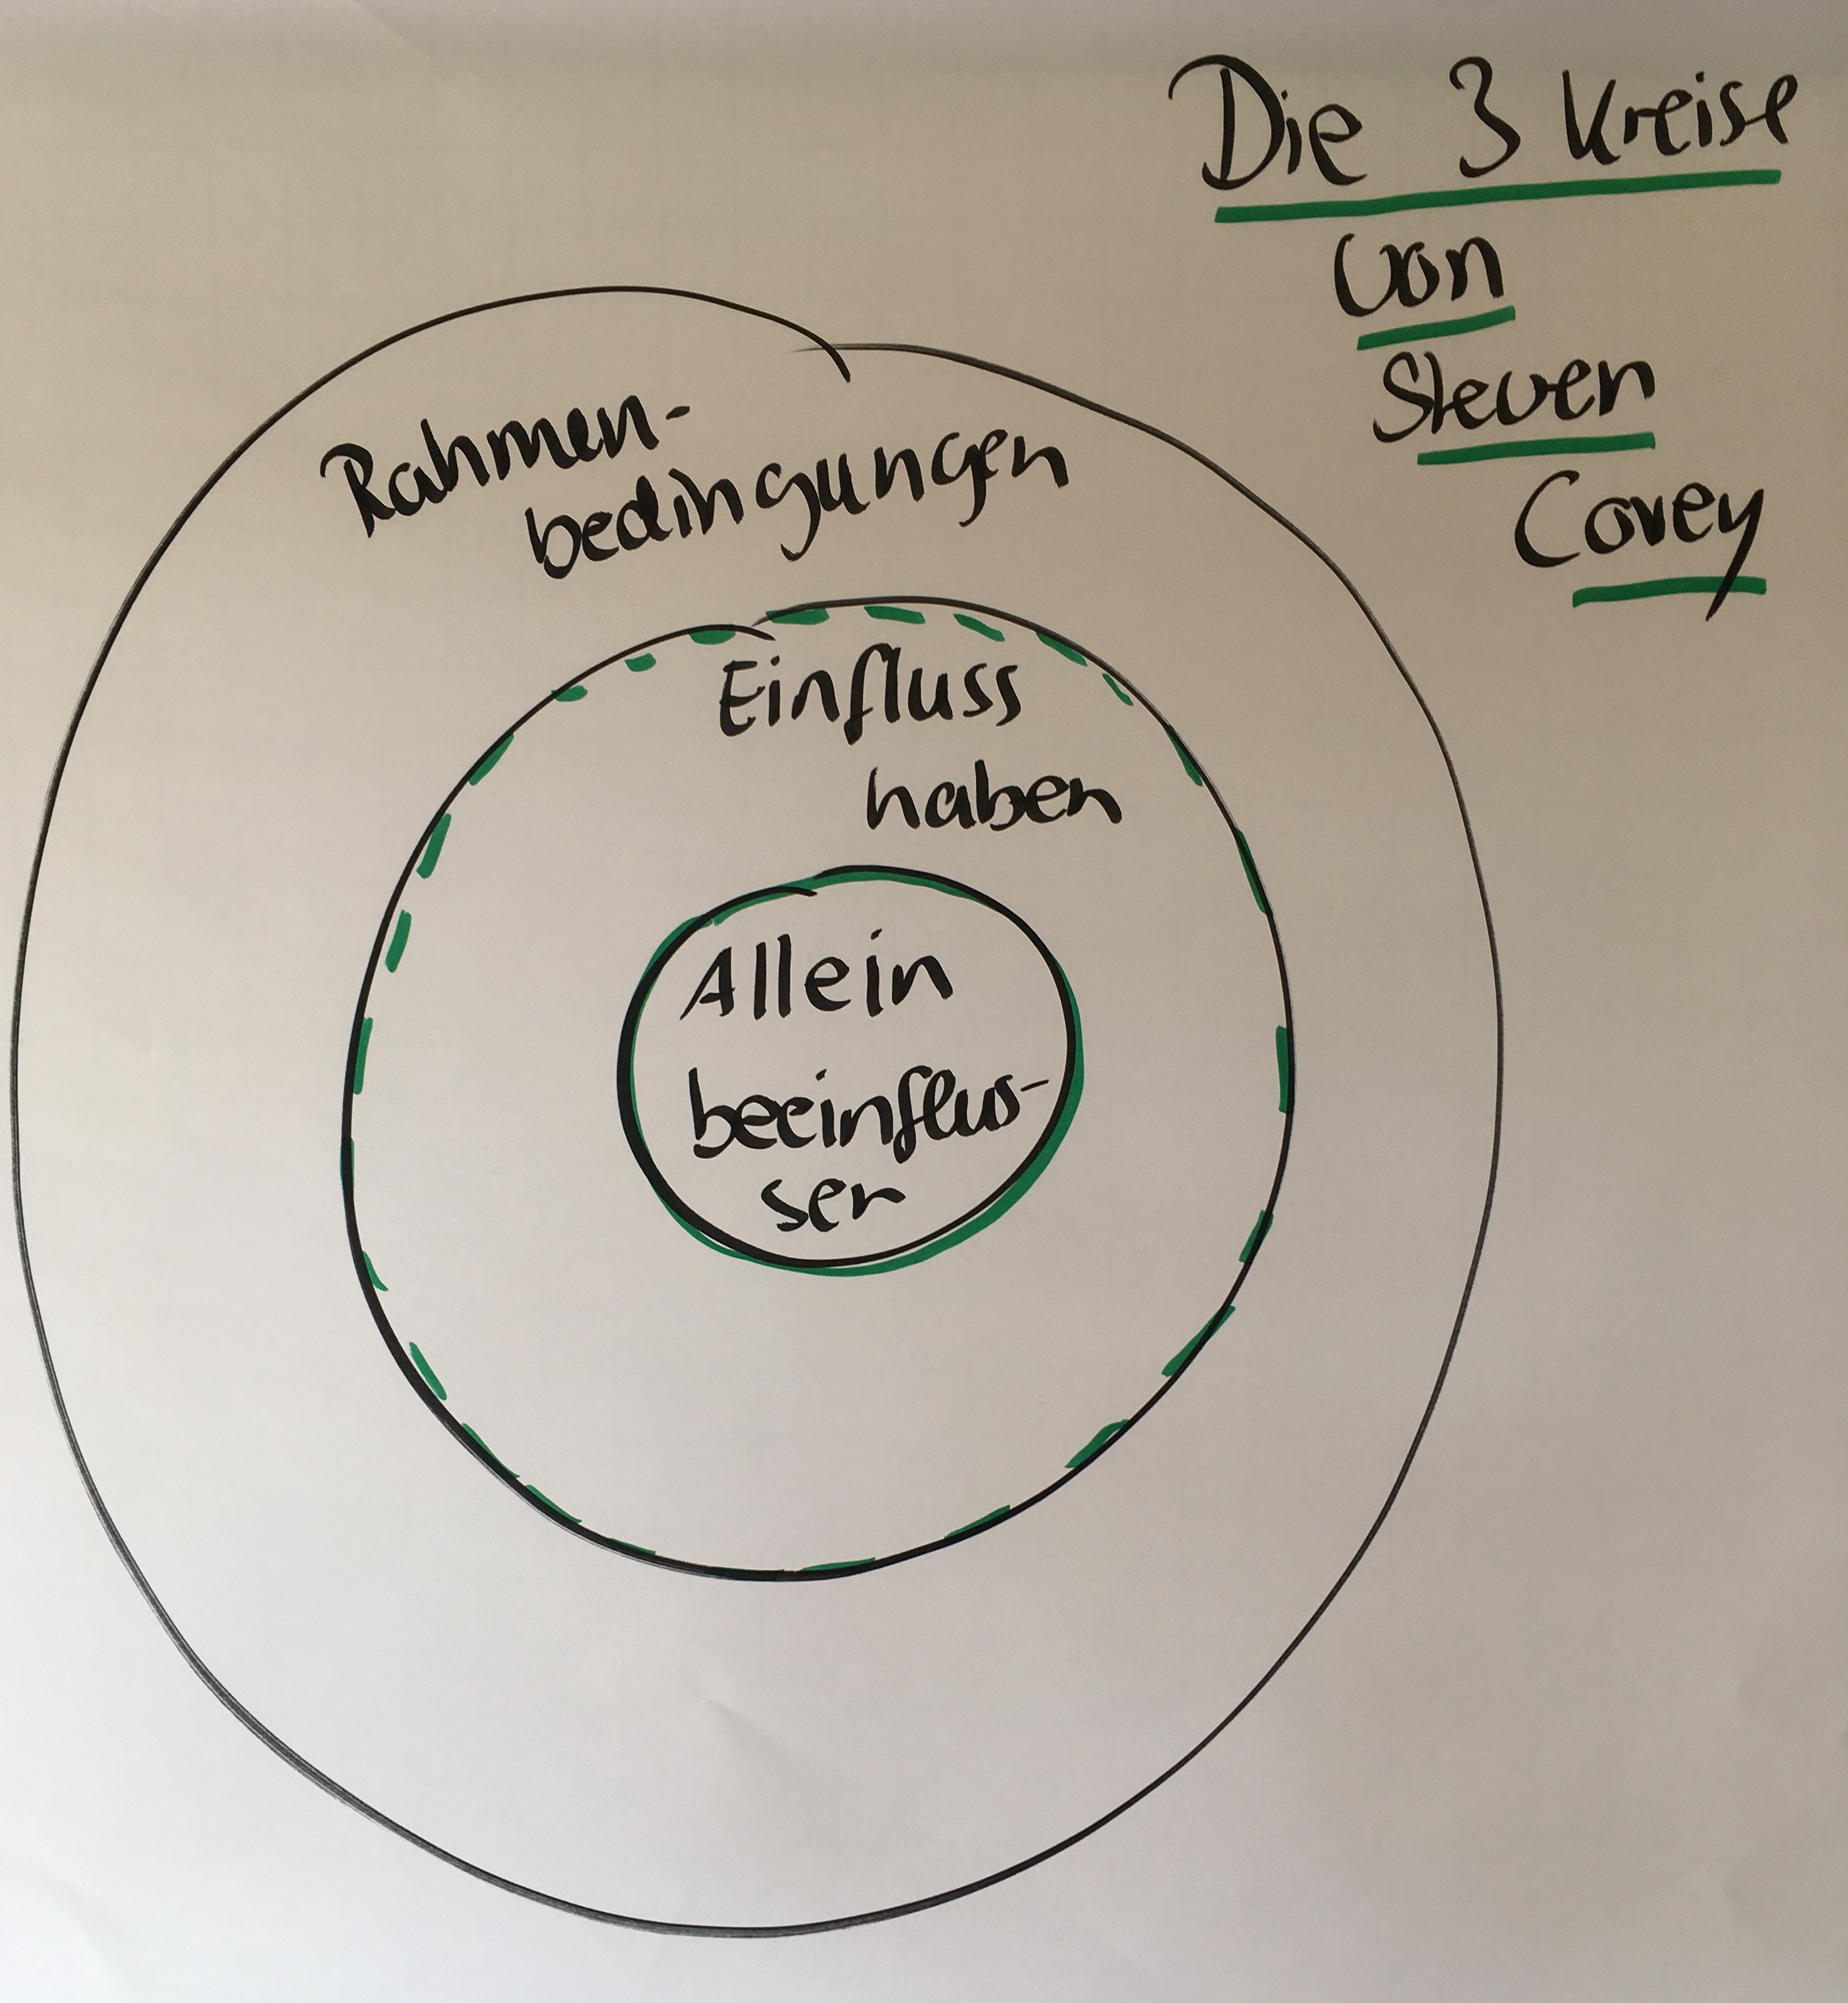 Die 3 Kreise
von
Steven
Covey
Rahmen-
bedingungen
Einfluss
haben
Allein
beeinflus-
sen